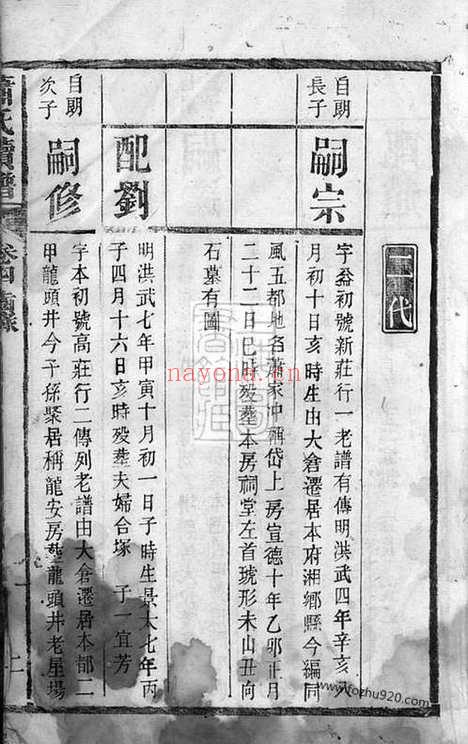 二代
自朗
長子
嗣宗
字 初號新莊行一老譜有傳明洪武四年辛亥
月初十日亥時生由大倉遷居本府湘鄉縣今編同
風五都地名蕭家冲稱岱上房宣德十年乙卯正月
二十二日巳時殁塟本房祠堂左首琥形未山丑向
石墓有圖
配劉
明洪武七年甲寅十月初一日子時生景太七年丙
子四月十六日亥時殁塟夫婦合塚 子一宜芳
自朗
次子
嗣修
字本初號高莊行二傳列老譜由大倉遷居本都二
甲龍頭井今子孫聚居稱龍安房塟龍頭井老屋場
蕭氏續譜
卷四
二
nayona.cn
fozhu920.com